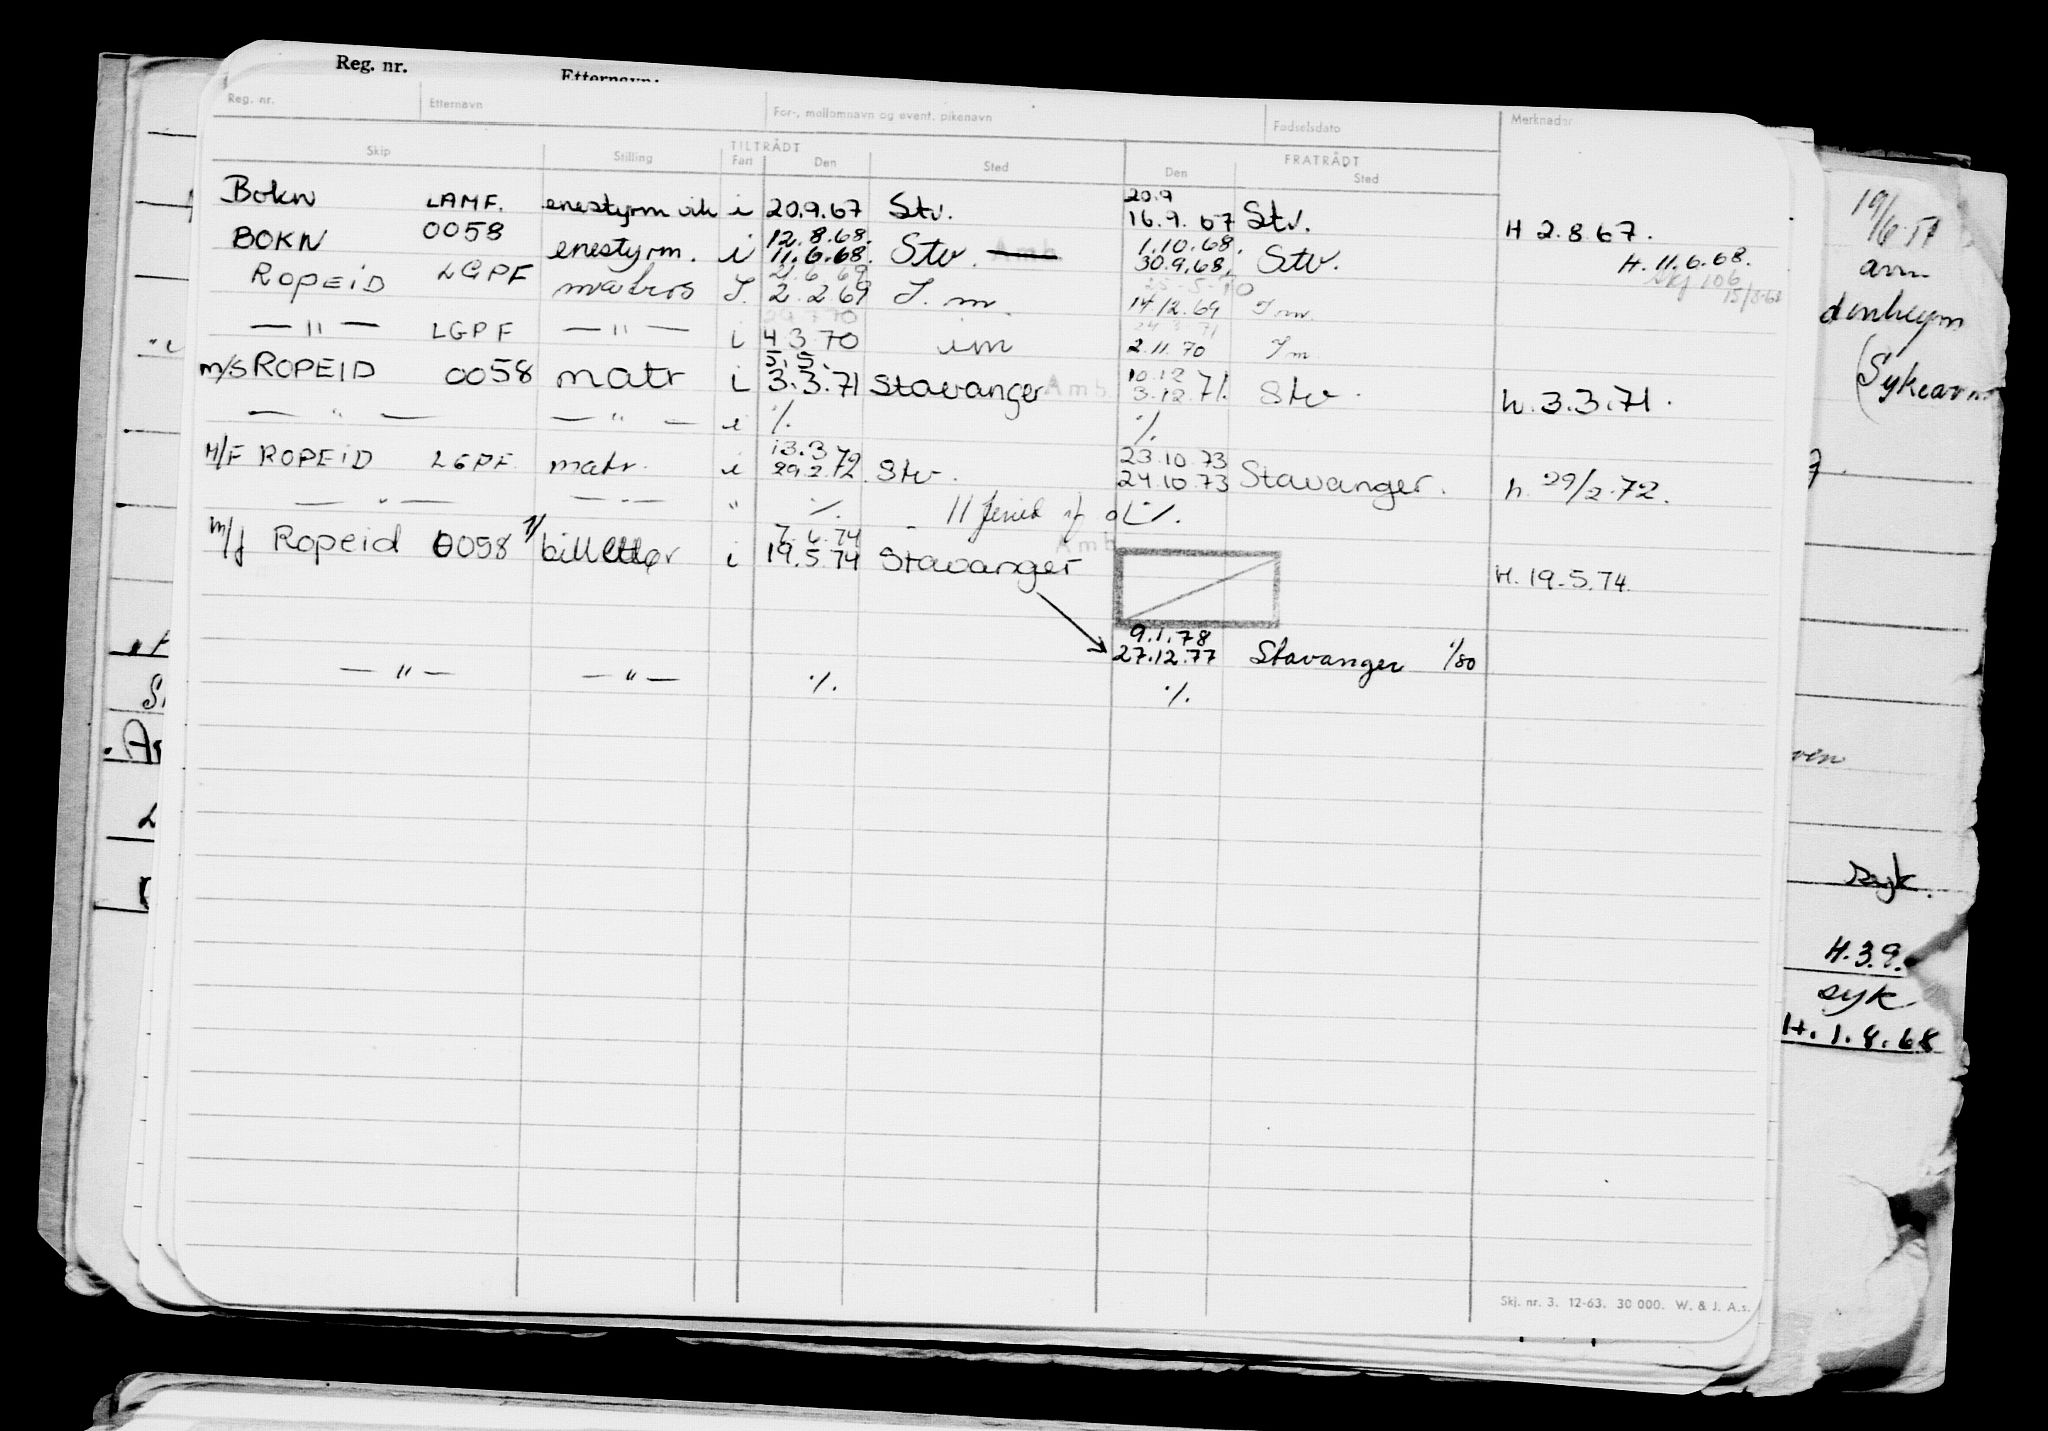 Reg. nr. Etternavn:
Reg. nr. Etternavn For-, mellomnavn og event. pikenavn Fødselsdato Merknader
TILTRÅDT FRATRÅDT
Skip Stilling Fart Den Sted Den Sted
20.9
Bokn LAMF. enestyrm vik i 20.9.67 Stv. 16.9.67 Stv. H 2.8.67.
12.8.68. 1.10.68.
BOKN 0058 enestyrm. i 11.6.68. Stv. Amb 30.9.68. Stv. H. 11.6.68.
21.6 69 25-5-70 106 15/8-68
ROPEID LGPF matros I. 2.2.69 I.m 14/12.69 I m.
29 7 70 24 3 71
— " — LGPF — " — i 4 3 70 im 2.11.70 I m
5.5. 10.12
m/s ROPEID 0058 matr i 3.3.71 Stavanger Amb 3.12.71. Stv. h. 3.3.71.
— " — — " — i ./. ./.
13.3 72 23.10.73
M/F ROPEID LGPF matr. i 29.2.72. Stv. 24.10.73 Stavanger. h. 29/2.72.
— " — — " — " ./. ./.
7.6.74 Amb
m/f Ropeid 0058 billettør i 19.5.74 Stavanger H. 19.5.74.
9.1.78
27.12.77 Stavanger 1/80
— " — — " — ./. ./.
Skj. nr. 3. 12-63. 30 000. W. & J. A.s.
19/6 51
avm
(Sykeavm
syk.
H. 3.9.
syk
H. 1.8.68